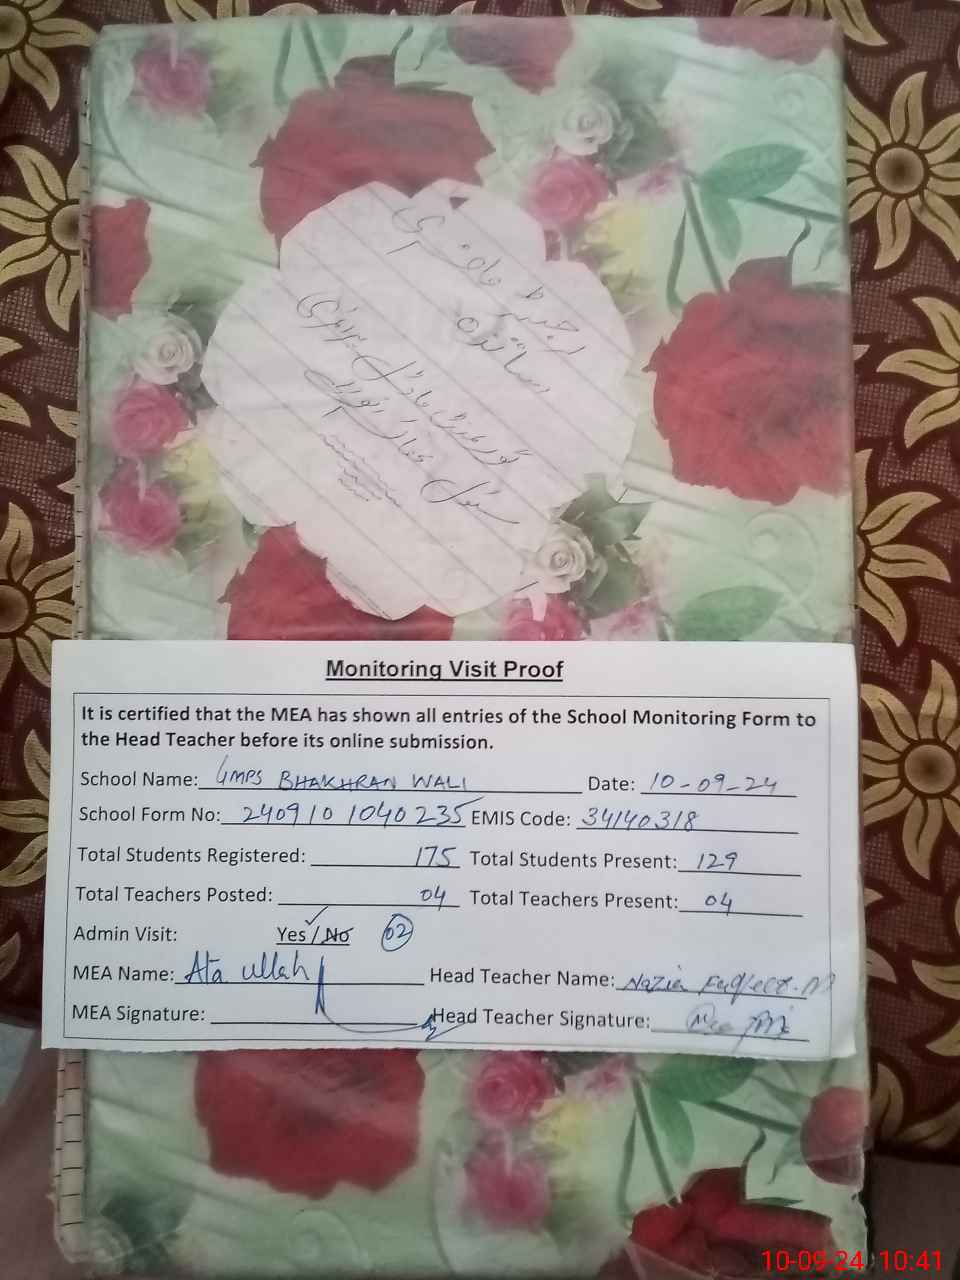 رجسٹر حاضری
اساتذہ
گورنمنٹ ماڈل پرائمری
سکول
Monitoring Visit Proof
It is certified that the MEA has shown all entries of the School Monitoring Form to
the Head Teacher before its online submission.
School Name: GMPS BHAKHRAN WALI Date: 10-09-24
School Form No: 240910 1040 235 EMIS Code: 34140318
Total Students Registered: 175 Total Students Present: 129
Total Teachers Posted: 04 Total Teachers Present: 04
Admin Visit: Yes / No 02
MEA Name: Ata ullah Head Teacher Name: Nazia
MEA Signature: Head Teacher Signature:
10-09-24 10:41